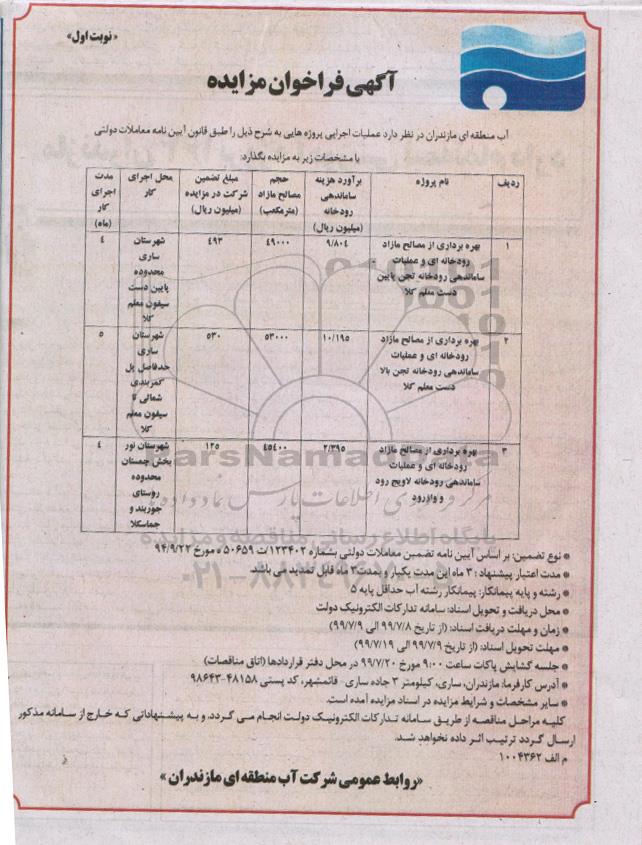 «نوبت اول»
آگهی فراخوان مزایده
آب منطقه ای مازندران در نظر دارد عملیات اجرایی پروژه هایی به شرح ذیل را طبق قانون آیین نامه معاملات دولتی
با مشخصات زیر به مزایده بگذارد:
ردیف | نام پروژه | برآورد هزینه ساماندهی رودخانه (میلیون ریال) | حجم مصالح مازاد (مترمکعب) | مبلغ تضمین شرکت در مزایده (میلیون ریال) | محل اجرای کار | مدت اجرای کار (ماه)
۱ | بهره برداری از مصالح مازاد رودخانه ای و عملیات ساماندهی رودخانه تجن پایین دست معلم کلا | ۹/۸۰۴ | ۴۹۰۰۰ | ۴۹۳ | شهرستان ساری محدوده پایین دست سیفون معلم کلا | ۴
۲ | بهره برداری از مصالح مازاد رودخانه ای و عملیات ساماندهی رودخانه تجن بالا دست معلم کلا | ۱۰/۱۹۵ | ۵۳۰۰۰ | ۵۳۰ | شهرستان ساری حدفاصل پل کمربندی شمالی تا سیفون معلم کلا | ۵
۳ | بهره برداری از مصالح مازاد رودخانه ای و عملیات ساماندهی رودخانه لاویج رود و وازرود | ۲/۳۹۵ | ۴۵۴۰۰ | ۱۲۵ | شهرستان نور بخش چمستان محدوده روستای جوربند و جماسکلا | ۴
* نوع تضمین: بر اساس آیین نامه تضمین معاملات دولتی بشماره ۱۲۳۴۰۲/ت ۵۰۶۵۹ ه مورخ ۹۴/۹/۲۲
* مدت اعتبار پیشنهاد : ۳ ماه این مدت یکبار و بمدت ۳ ماه قابل تمدید می باشد.
* رشته و پایه پیمانکار: پیمانکار رشته آب حداقل پایه ۵
* محل دریافت و تحویل اسناد: سامانه تدارکات الکترونیک دولت
* زمان و مهلت دریافت اسناد: (از تاریخ ۹۹/۷/۸ الی ۹۹/۷/۹)
* مهلت تحویل اسناد: (از تاریخ ۹۹/۷/۹ الی ۹۹/۷/۱۹)
* جلسه گشایش پاکات ساعت ۹:۰۰ مورخ ۹۹/۷/۲۰ در محل دفتر قراردادها (اتاق مناقصات)
* آدرس کارفرما: مازندران، ساری، کیلومتر ۳ جاده ساری - قائمشهر، کد پستی ۴۸۱۵۸-۹۸۶۴۳
* سایر مشخصات و شرایط مزایده در اسناد مزایده آمده است.
کلیه مراحل مناقصه از طریق سامانه تدارکات الکترونیک دولت انجام می گردد. و به پیشنهاداتی که خارج از سامانه مذکور
ارسال گردد ترتیب اثر داده نخواهد شد.
م الف ۱۰۰۴۳۶۲
«روابط عمومی شرکت آب منطقه ای مازندران»
ParsNamadData
مرکز فرآوری اطلاعات پارس نماد داده ها
پایگاه اطلاع رسانی مناقصه و مزایده